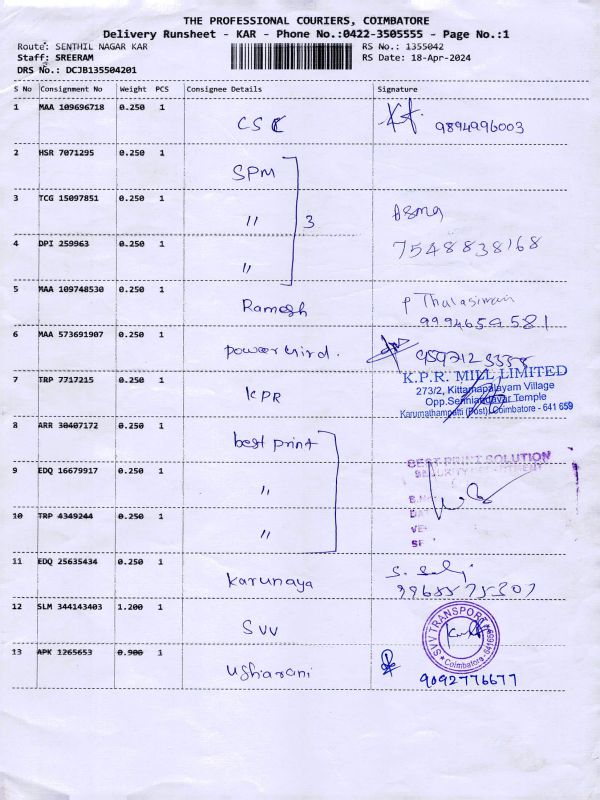 THE PROFESSIONAL COURIERS, COIMBATORE
Delivery Runsheet - KAR - Phone No.:0422-3505555 - Page No.:1
Route: SENTHIL NAGAR KAR RS No.: 1355042
Staff: SREERAM RS Date: 18-Apr-2024
DRS No.: DCJB135504201
S No Consignment No Weight PCS Consignee Details Signature
1 MAA 109696718 0.250 1
CSC 9894996003
2 HSR 7071295 0.250 1
SPM
3 TCG 15097851 0.250 1
" 3
7548838168
4 DPI 259963 0.250 1
"
5 MAA 109748530 0.250 1
Ramesh
9994659581
6 MAA 573691907 0.250 1
powerthird.
7 TRP 7717215 0.250 1
KPR
K.P.R. MILL LIMITED
273/2, Kittampalayam Village
Opp. Temple
Karumathampatti (Post), Coimbatore - 641 659
8 ARR 30407172 0.250 1
best print
BEST PRINT SOLUTION
SECURITY DEPARTMENT
9 EDQ 16679917 0.250 1
"
10 TRP 4349244 0.250 1
"
11 EDQ 25635434 0.250 1
Karunaya
12 SLM 344143403 1.200 1
SVV
SVV TRANSPORT
Coimbatore-641659
13 APK 1265653 0.900 1
Usharani
9092776677